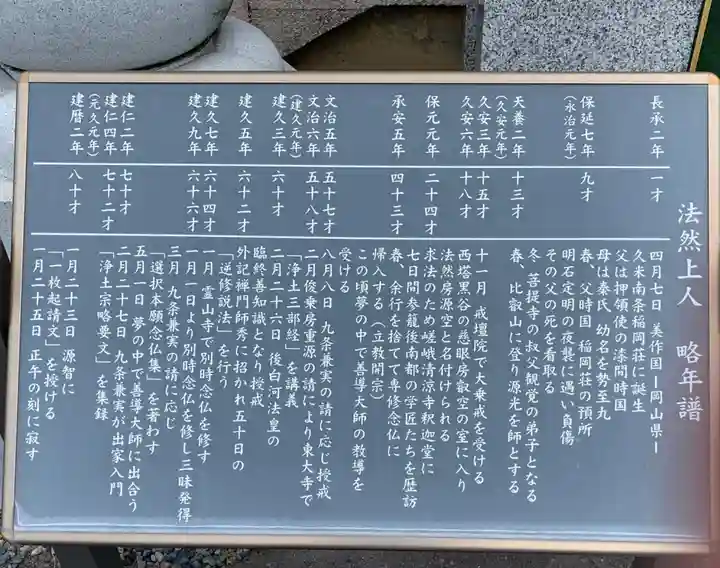 法然上人 略年譜
長承二年 一才 四月七日 美作国ー岡山県ー
久米南条稲岡荘に誕生
父は押領使の漆間時国
母は秦氏 幼名を勢至丸
保延七年 九才 春、父時国 稲岡荘の預所
(永治元年) 明石定明の夜襲に遇い負傷
その父の死を看取る
冬 菩提寺の叔父観覚の弟子となる
天養二年 十三才 春、比叡山に登り源光を師とする
(久安元年)
久安三年 十五才 十一月 戒壇院で大乗戒を受ける
久安六年 十八才 西塔黒谷の慈眼房叡空の室に入り
法然房源空と名付けられる
保元元年 二十四才 求法のため嵯峨清凉寺釈迦堂に
七日間参籠後南都の学匠たちを歴訪
承安五年 四十三才 春、余行を捨てて専修念仏に
帰入する(立教開宗)
この頃夢の中で善導大師の教導を
受ける
文治五年 五十七才 八月八日 九条兼実の請に応じ授戒
文治六年 五十八才 二月俊乗房重源の請により東大寺で
(建久元年) 「浄土三部経」を講義
建久三年 六十才 二月二十六日 後白河法皇の
臨終善知識となり授戒
建久五年 六十二才 外記禅門師秀に招かれ五十日の
「逆修説法」を行う
建久七年 六十四才 一月 霊山寺で別時念仏を修す
建久九年 六十六才 一月一日より別時念仏を修し三昧発得
三月 九条兼実の請に応じ
「選択本願念仏集」を著わす
五月一日 夢の中で善導大師に出合う
建仁二年 七十才 二月二十七日 九条兼実が出家入門
建仁四年 七十二才 「浄土宗略要文」を集録
(元久元年)
建暦二年 八十才 一月二十三日 源智に
「一枚起請文」を授ける
一月二十五日 正午の刻に寂す